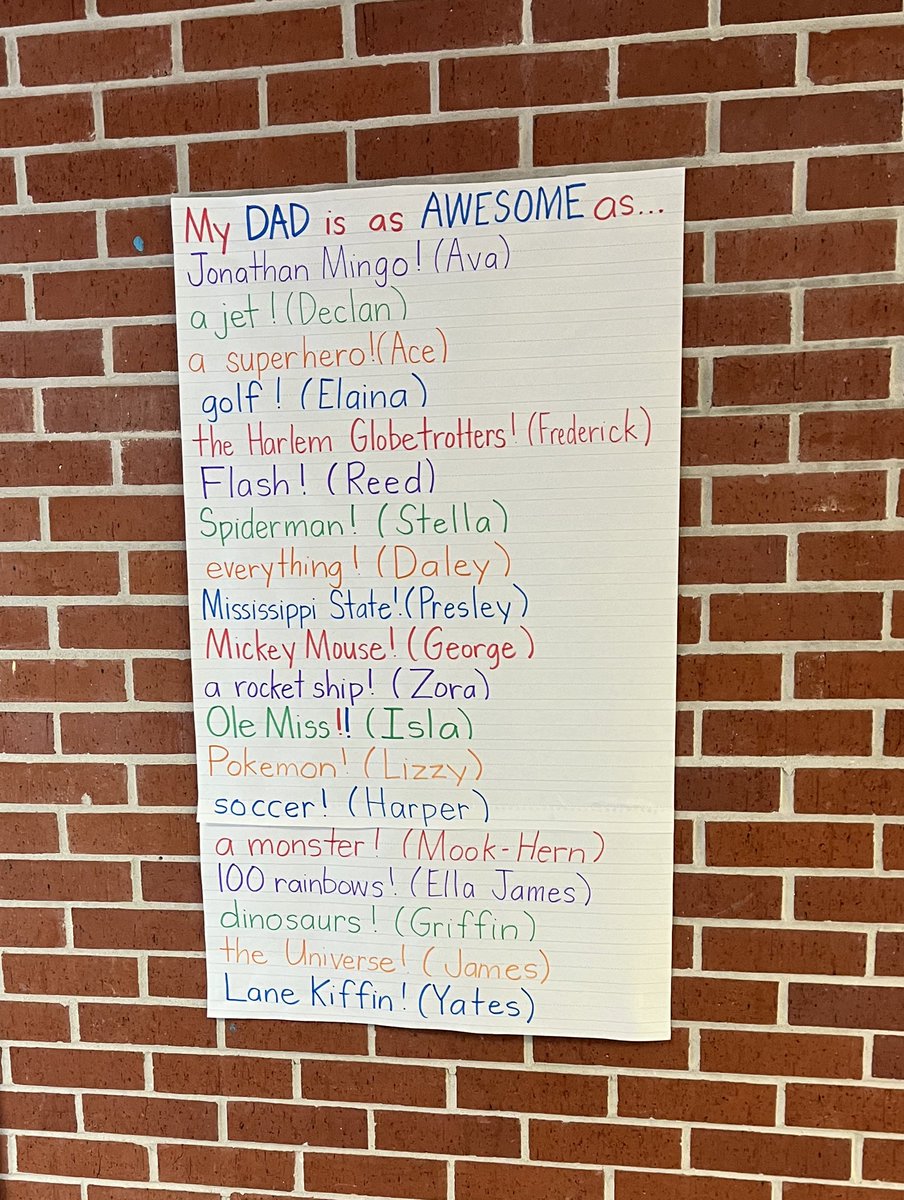 My DAD is as AWESOME as...
Jonathan Mingo! (Ava)
a jet! (Declan)
a superhero! (Ace)
golf! (Elaina)
the Harlem Globetrotters! (Frederick)
Flash! (Reed)
Spiderman! (Stella)
everything! (Daley)
Mississippi State! (Presley)
Mickey Mouse! (George)
a rocket ship! (Zora)
Ole Miss!! (Isla)
Pokemon! (Lizzy)
soccer! (Harper)
a monster! (Mook-Hern)
100 rainbows! (Ella James)
dinosaurs! (Griffin)
the Universe! (James)
Lane Kiffin! (Yates)